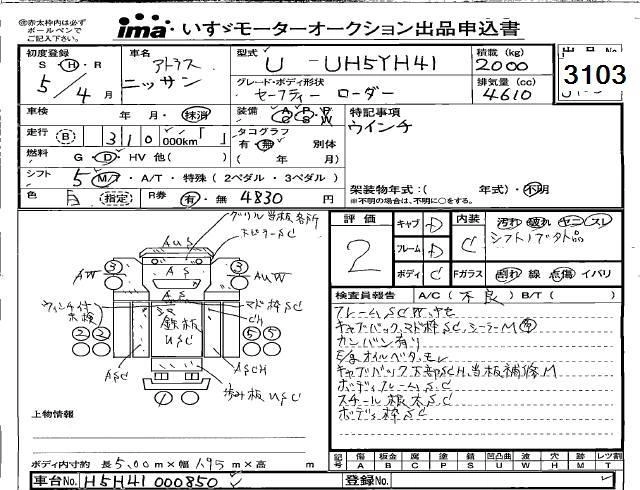 ㊟赤太枠内は必ず
ボールペンで
ご記入下さい。
ima いすゞモーターオークション出品申込書
初度登録
S・H・R
5/4月
車名
アトラス
ニッサン
型式
U-UH5YH41
積載 (kg)
2000
出品No.
3103
グレード・ボディ形状
セーフティーローダー
排気量 (cc)
4610
車検 年 月・抹消
装備 A/C P/S P/W
特記事項
ウインチ
走行 B 310 000km「 」
タコグラフ
有・無 別体
( 年 月)
燃料 G・D・HV 他( )
シフト 5 M/T・A/T・特殊(2ペダル・3ペダル)
架装物年式:( 年式)・不明
※不明の場合は、不明に○をする。
色 白 (指定) R券 有・無 4830円
グリル当板各所
AUS
下ミラーSC
3 3
AS
AW AUW
ウィンチ付
未検
AS
マド枠SC
CH
鉄板
USC
2 2 5 5
ASC
ASCH
歩み板USC
1
上物情報
ボディ内寸約 長5.00m×幅1.95m×高 m
評価
2
キャブ D
フレーム D
ボディ C
内装 C
Fガラス
汚れ 破れ ヤニ スレ
シフトノブ欠品
割れ 線 点傷 イバリ
検査員報告 A/C(不良) B/T( )
フレームSCW、ヤセ
キャブバック、マド枠SC、シーラーM
カンバン有り
E/gオイルベタ、モレ
キャブバック下部SCH、当板補修M
ボディフレームSC
スチール根太SC
ボディ枠SC
記号 傷 A 板金 B 腐 C 塗 P 錆 S 凹凸曲 U 波 W 穴 H 跡 M レツ割 T
車台No. H5H41 000850
登録No.